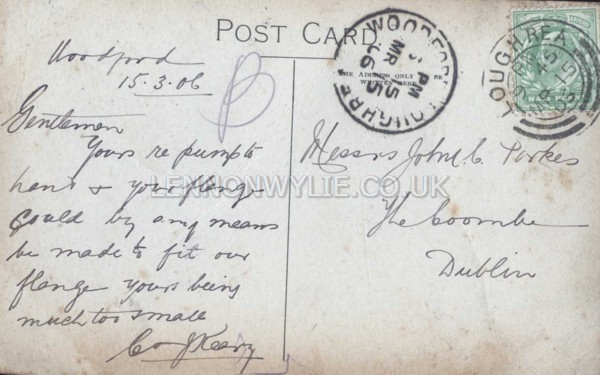 POST CARD
THE ADDRESS ONLY TO BE WRITTEN HERE
Woodford
15.3.06
Gentlemen
Yours re pump to
hand & your flange
could by any means
be made to fit our
flange yours being
much too small
Keary
Messrs John C. Parkes
The Coombe
Dublin
WOODFORD
PM
MR 15
06
LOUGHREA
LOUGHREA
LENNONWYLIE.CO.UK